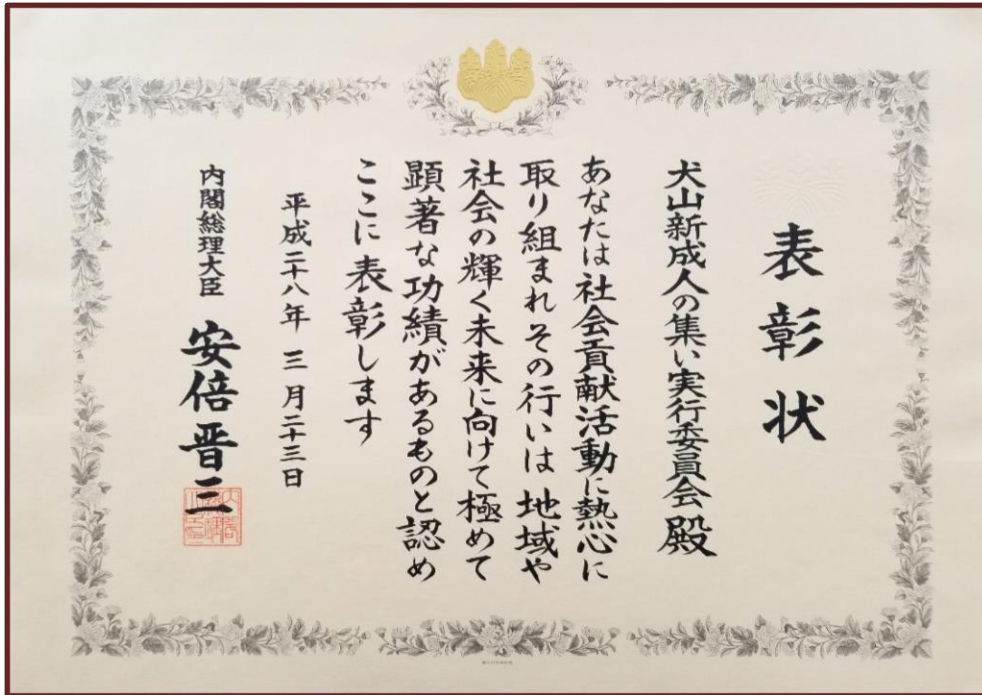 表彰状
犬山新成人の集い実行委員会 殿
あなたは社会貢献活動に熱心に
取り組まれその行いは地域や
社会の輝く未来に向けて極めて
顕著な功績があるものと認め
ここに表彰します
平成二十八年 三月二十三日
内閣総理大臣 安倍晋三